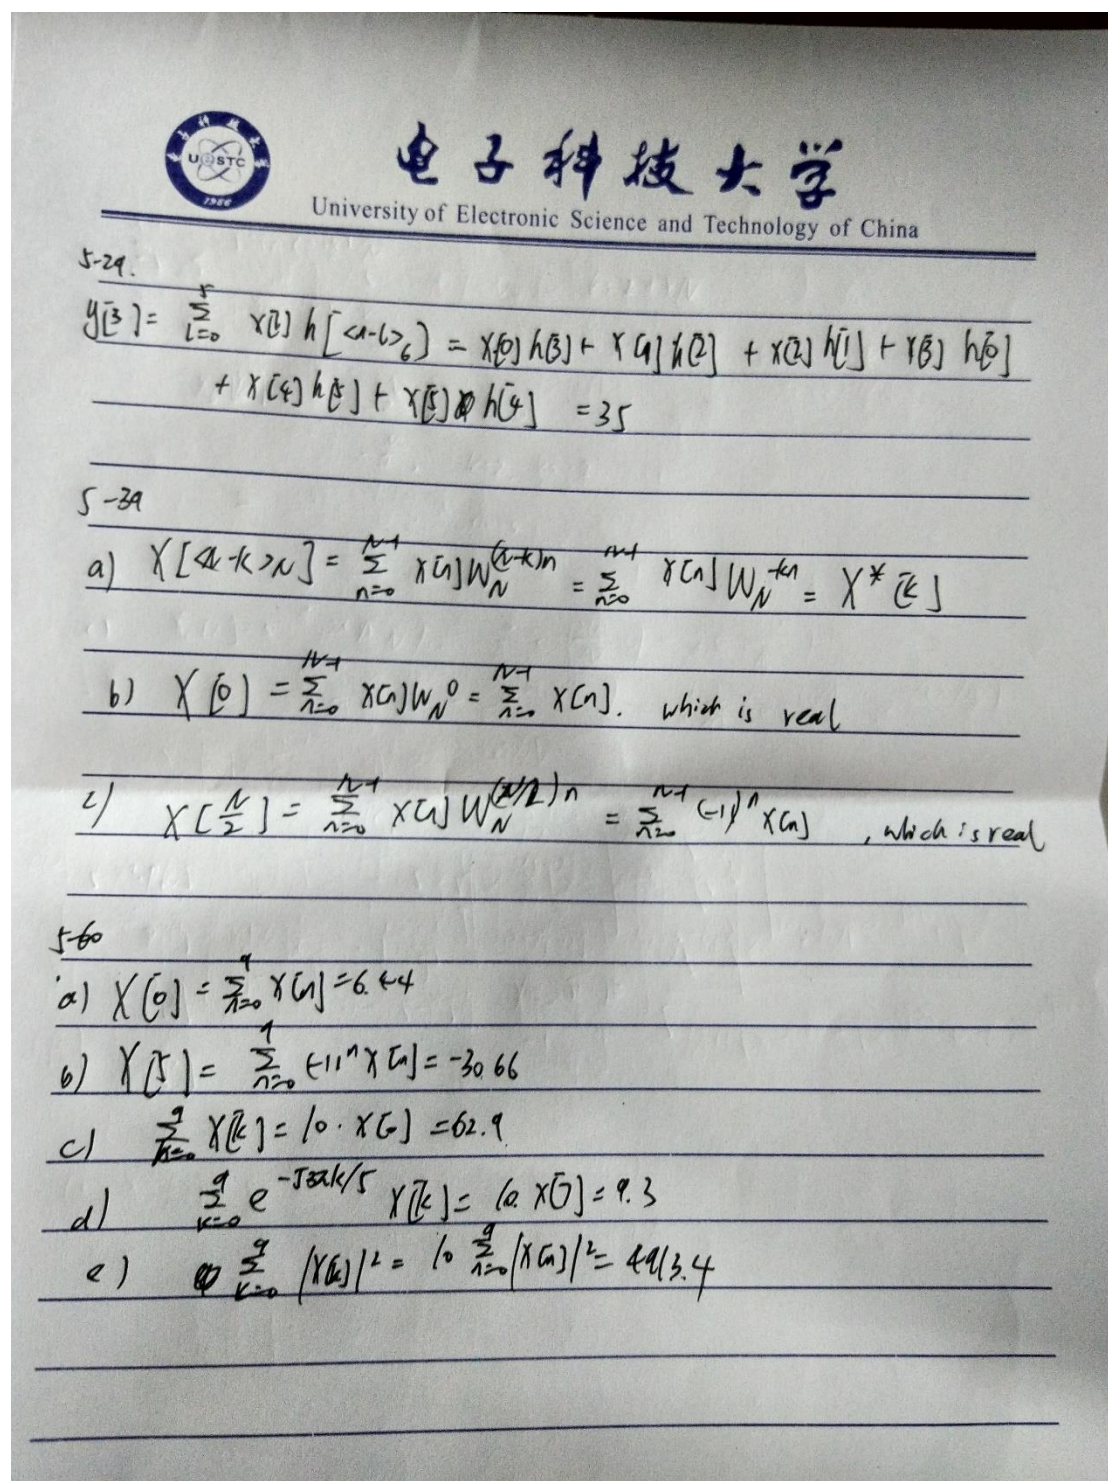 电子科技大学
UESTC
1956
University of Electronic Science and Technology of China
5-29.
y[3] = \sum_{l=0}^{5} x[l] h[<n-l>_6] = x[0]h[3] + x[1]h[2] + x[2]h[1] + x[3]h[0]
+ x[4]h[5] + x[5]h[4] = 35
5-39
a) X[<N-k>_N] = \sum_{n=0}^{N-1} x[n]W_N^{(N-k)n} = \sum_{n=0}^{N-1} x[n]W_N^{-kn} = X*[k]
b) X[0] = \sum_{n=0}^{N-1} x[n]W_N^0 = \sum_{n=0}^{N-1} x[n]. which is real
c) X[N/2] = \sum_{n=0}^{N-1} x[n]W_N^{(N/2)n} = \sum_{n=0}^{N-1} (-1)^n x[n], which is real
5-60
a) X[0] = \sum_{n=0}^{9} x[n] = 6.44
b) X[5] = \sum_{n=0}^{9} (-1)^n x[n] = -30.66
c) \sum_{k=0}^{9} X[k] = 10·x[0] = 62.9
d) \sum_{k=0}^{9} X[k] = 9.3
e) \sum_{k=0}^{9} |X[k]|^2 = 10 \sum_{n=0}^{9} |x[n]|^2 =